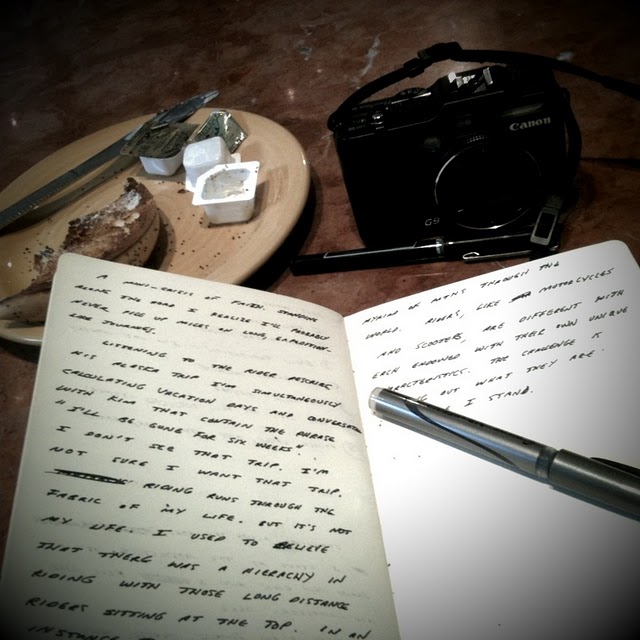 Canon
G9
A MINI-CRISIS OF FAITH. STANDING
ALONG THE ROAD I REALIZE I'LL PROBABLY
NEVER PILE UP MILES ON LONG, EXPEDITION-
LIKE JOURNEYS.
LISTENING TO THE RIDER DESCRIBE
HIS ALASKA TRIP I'M SIMULTANEOUSLY
CALCULATING VACATION DAYS AND CONVERSATIONS
WITH KIM THAT CONTAIN THE PHRASE
"I'LL BE GONE FOR SIX WEEKS."
I DON'T SEE THAT TRIP. I'M
NOT SURE I WANT THAT TRIP.
RIDING RUNS THROUGH THE
FABRIC OF MY LIFE. BUT IT'S NOT
MY LIFE. I USED TO BELIEVE
THAT THERE WAS A HIERARCHY IN
RIDING WITH THOSE LONG DISTANCE
RIDERS SITTING AT THE TOP. IN AN
INSTANCE
MYRIAD OF PATHS THROUGH THE
WORLD. RIDERS, LIKE MOTORCYCLES
AND SCOOTERS, ARE DIFFERENT WITH
EACH ENDOWED WITH THEIR OWN UNIQUE
CHARACTERISTICS. THE CHALLENGE IS
OUT WHAT THEY ARE.
I STAND.